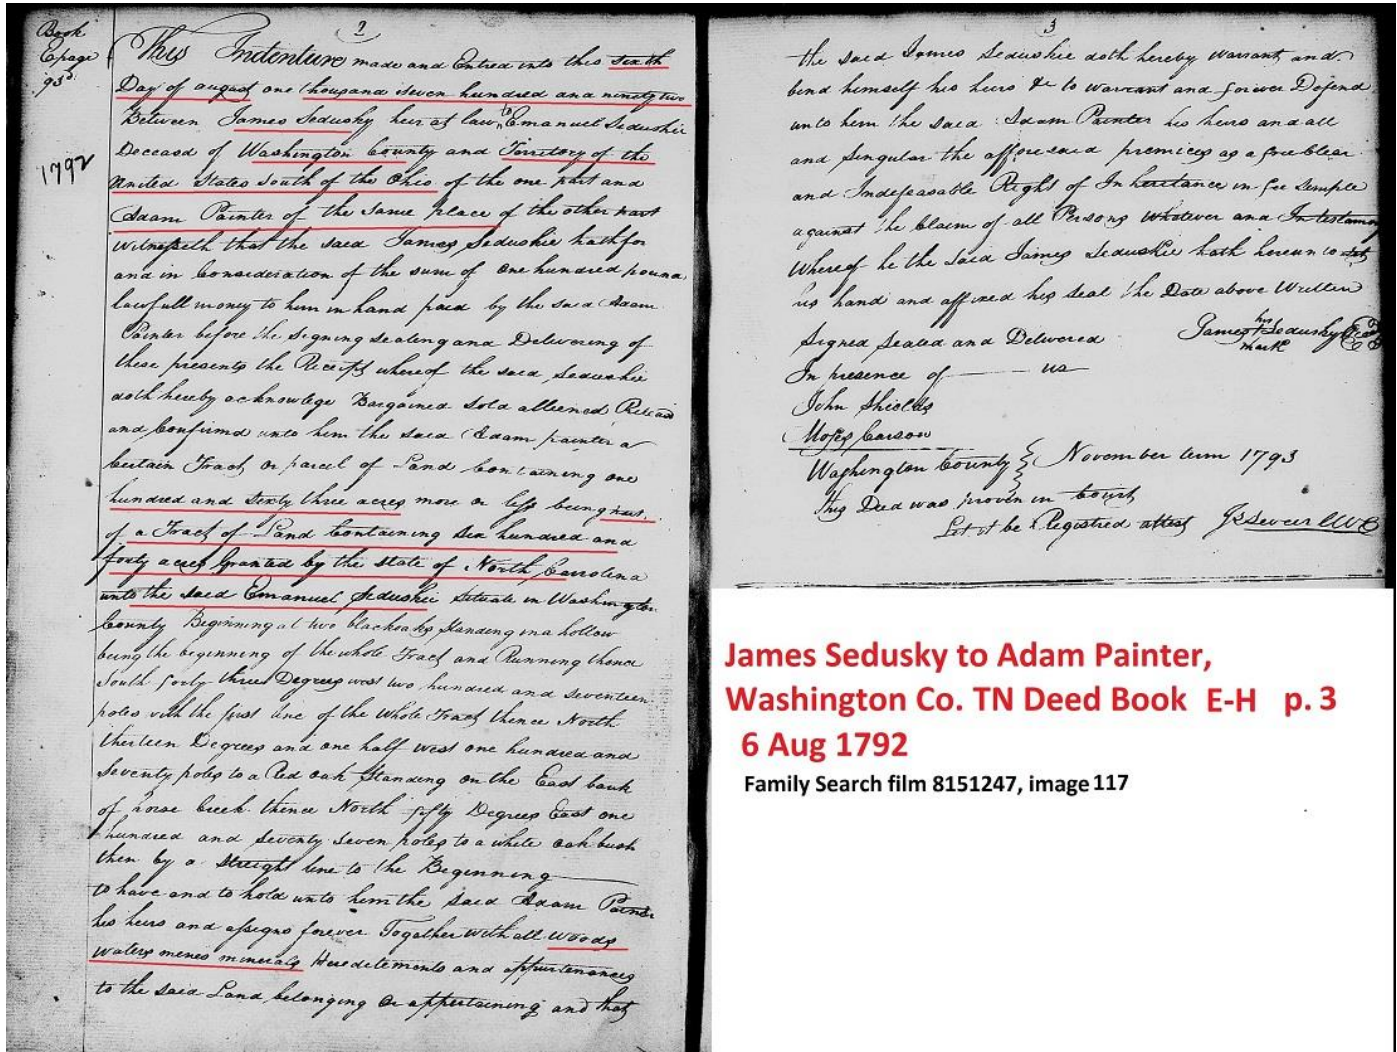 Book
E page
93
1792
2
This Indenture made and Entred into this sixth
Day of august one thousand seven hundred and ninety two
Between James Sedusky heir at law to Emanuel Seduskie
Deceasd of Washington County and Territory of the
United States South of the Ohio of the one part and
Adam Painter of the Same place of the other part
Witnesseth that the said James Seduskie hath for
and in Consideration of the sum of one hundred pound
lawfull money to him in hand paid by the said Adam
Painter before the Signing sealing and Delivering of
these presents the Receipt whereof the said Seduskie
doth hereby acknowlege Bargained Sold alliened
and Confirmd unto him the said Adam painter a
Certain Tract or parcel of Land Containing one
hundred and sixty three acres more or less being part
of a Tract of Land Containing six hundred and
forty acres Granted by the state of North Carrolina
unto the said Emanuel Seduskie situate in Washington
County Beginning at two blackoaks standing in a hollow
being the beginning of the whole Tract and Running thence
South forty three Degrees west two hundred and seventeen
poles with the first line of the Whole Tract thence North
thirteen Degrees and one half west one hundred and
Seventy poles to a Red oak standing on the East bank
of horse Creek thence North fifty Degrees East one
hundred and seventy seven poles to a white oak bush
then by a streight line to the Beginning
to have and to hold unto him the said Adam Painter
his heirs and assigns forever Together with all woods
waters mines minerals Hereditements and appurtenances
to the said Land belonging or appertaining and that
3
the said James Seduskie doth hereby warrant and
bind himself his heirs &c to warrant and forever Defend
unto him the said Adam Painter his heirs and all
and Singular the afforesaid premices as a free Clear
and Indefeasable Right of Inheritance in fee Semple
against the Claim of all Persons Whatever and In testamony
Whereof he the said James Seduskie hath hereunto set
his hand and affixed his seal the Date above Written
Signed Sealed and Delivered James his Sedusky
mark
In presence of us
John Shields
Moses Carson
Washington County } November term 1793
this Deed was proven in Court
Let it be Registred attest Js Sevier CWC
James Sedusky to Adam Painter,
Washington Co. TN Deed Book E-H p. 3
6 Aug 1792
Family Search film 8151247, image 117